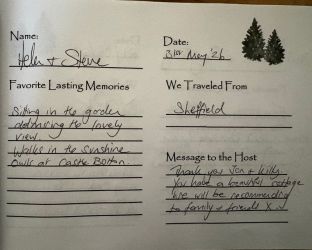 Name:
Helen & Steve
Date:
31st May '26
Favorite Lasting Memories
Sitting in the garden
admiring the lovely
view.
Walks in the sunshine
Owls at Castle Bolton.
We Traveled From
Sheffield
Message to the Host
Thank you Jon & Kitty
You have a beautiful cottage
We will be recommending
to family & friends X X